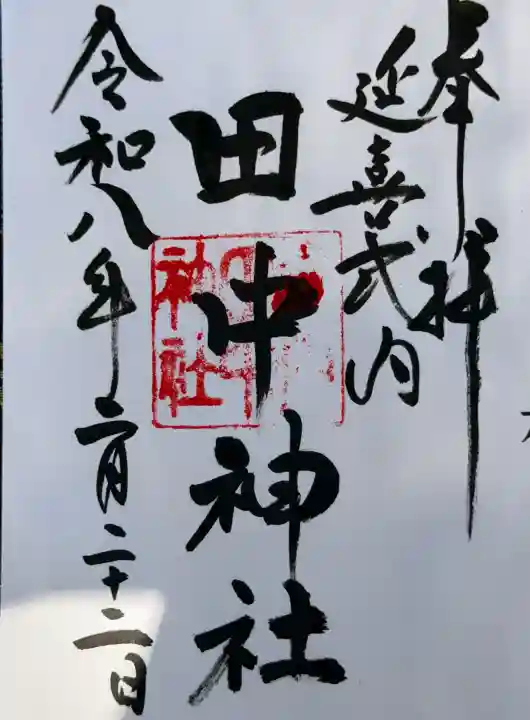 奉拝
延喜式内
田中神社
神社
令和八年二月二十二日